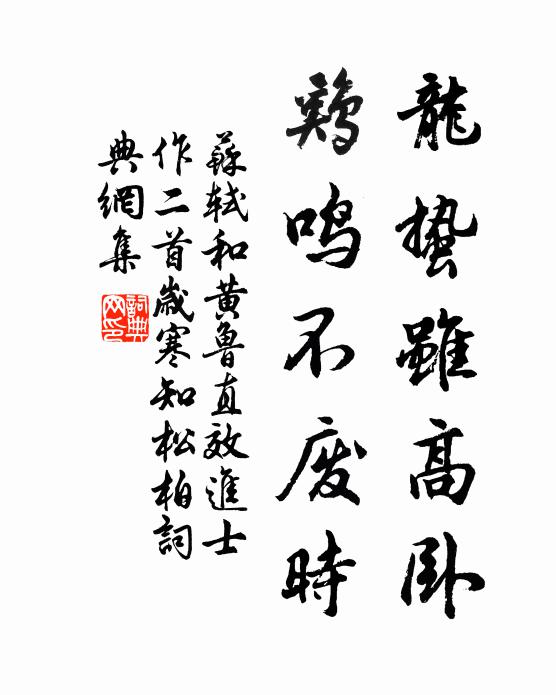 龍蟄雖高卧
鷄鳴不废時
蘇軾和黄魯直效進士
作二首歲寒知松柏詞
典網集
詞典网印